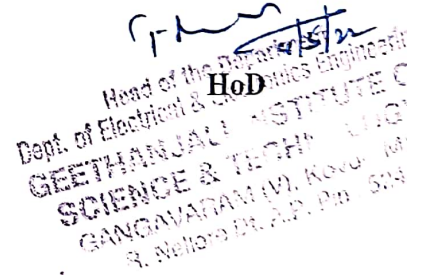 4/5/22
Head of the Department
HoD
Dept. of Electrical & Electronics Engineering
GEETHANJALI INSTITUTE O
SCIENCE & TECHN
GANGAVARAM (V), Kovur
Nellore Dt. A.P. Pin - 524